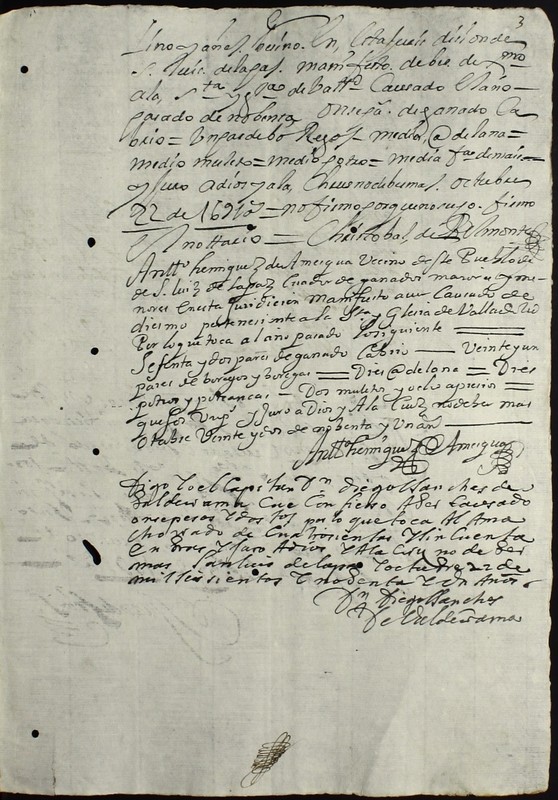 3
Lino Yañes Vecino. En, esta Juris diision de
S. Luis. de la pas. manifesto. deber de
ala, Sta Yglecia de Vallid Causado El año
pasado de nobenta onse pas. de ganado Ca
brio = Un par de bo Regos = media, @ de lana =
medio muleto = medio potro = media fa de mais =
y Juro a dios y ala, Cruz no debe mas. octubre
22 de 1691 as = no firmo porque no supo. firmo
El nottario = Christobal de Belmonte
Antto henriquez de Ameigua Vecino de Ste Pueblo de
de S. luiz de la paz Criador de ganados maiores y me-
nores En esta Juridicion Manifiesto aver Causado de
diesmo perteneciente a la Sta Yglesia de Valladolid
Por lo que toca al año pasado lo siguiente
Sesenta y dos pares de ganado Cabrio — Veinte y un
pares de borregos y borregas = Dres @ de lana = Dres
potros y potrancas = Dos muletos y ocho a presio =
que son Un po y Juro a Dios y A la Cruz no deber mas
Otubre Veinte y dos de nobenta y Un as
Antto henriquez de Ameigua
Digo Yo el Capitan Dn diego Sanches de
Balderrama que Confieso Aber Causado
onse pesos Y dos tos por lo que toca Al Ama
cho rado de Cuatrosientas Y Sincuenta
Y Juro A dios Y A la Crus no de ber
mas San luis de la pas Y octubre 22 de
mill Seisientos Y nobenta Y Un Años
Dn Diego Sanches
de Valderrama